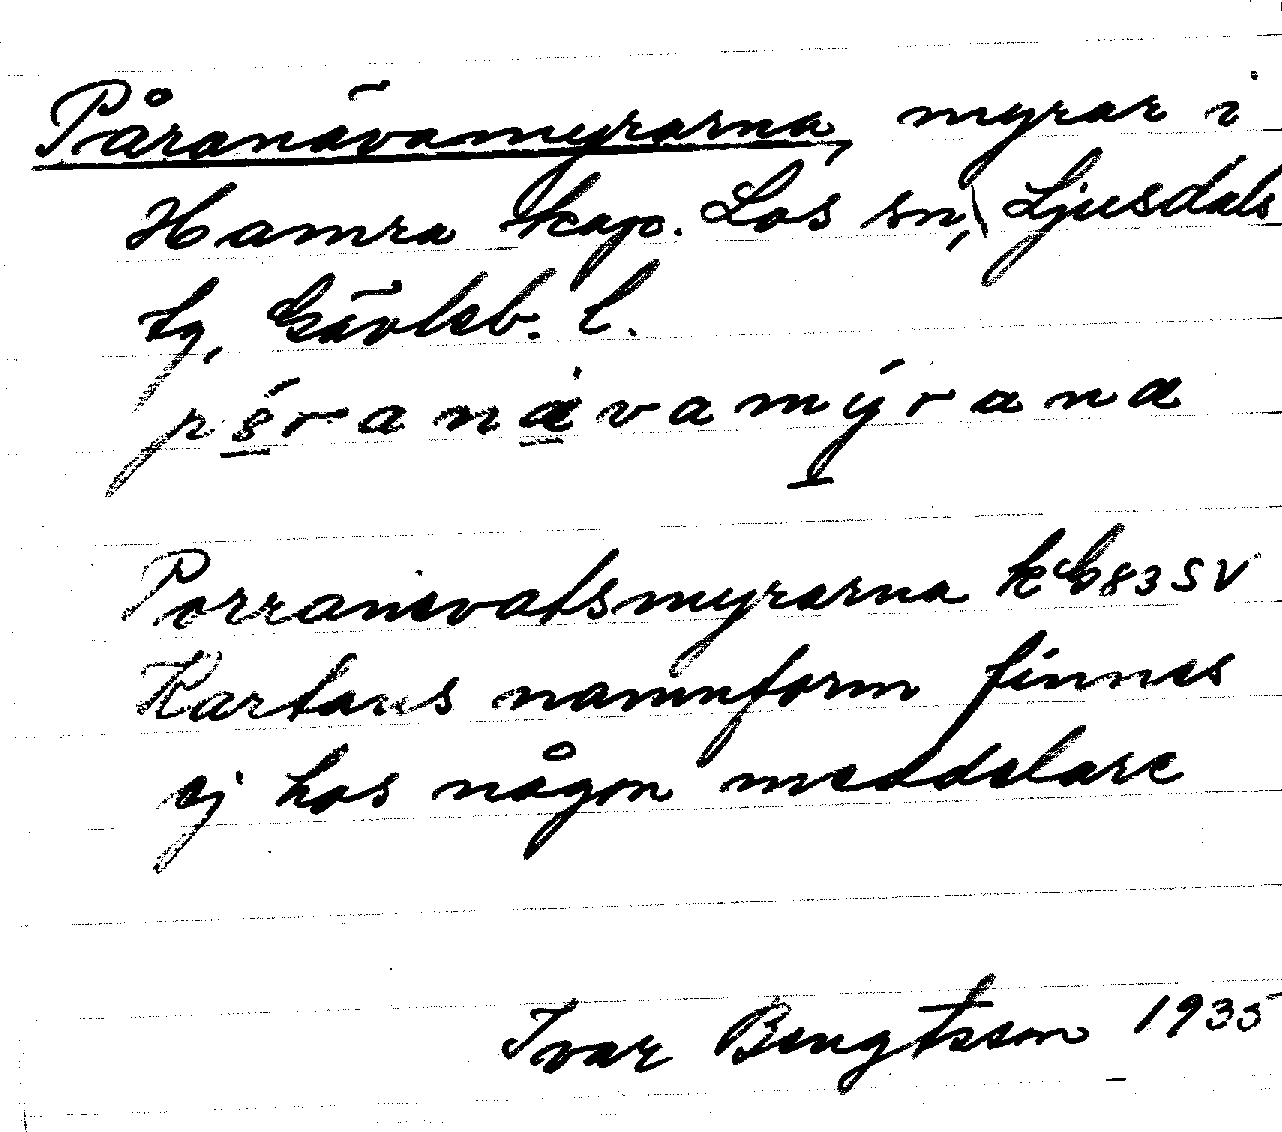 Påranävamyrarna, myrar i
Hamra kap. Los sn, Ljusdals
tg, Gävleb. l.
Porranevatsmyrarna k G83SV
Kartans namnform finnes
ej hos någon meddelare
Ivar Bengtsson 1935